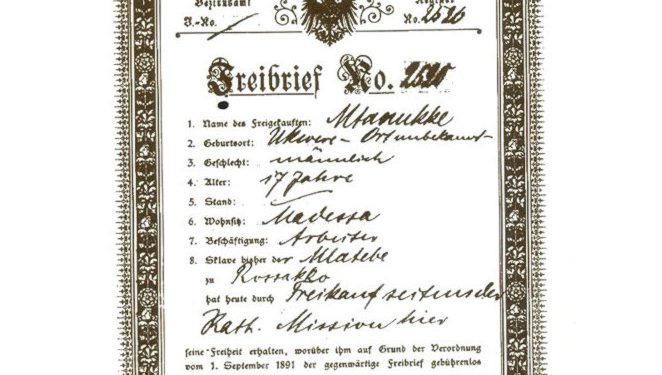 Bezirksamt
Register
J.-No. /
No. 2526
Freibrief No.
1. Name des Freigekauften: Mtanukke
2. Geburtsort: Ukwere – Ort unbekannt
3. Geschlecht: männlich
4. Alter: 17 Jahre
5. Stand: –
6. Wohnsitz: Madessa
7. Beschäftigung: Arbeiter
8. Sklave bisher der Mlatebe
zu Rossakko
hat heute durch Freikauf seitens der
Kath. Mission hier
seine Freiheit erhalten, worüber ihm auf Grund der Verordnung
vom 1. September 1891 der gegenwärtige Freibrief gebührenlos